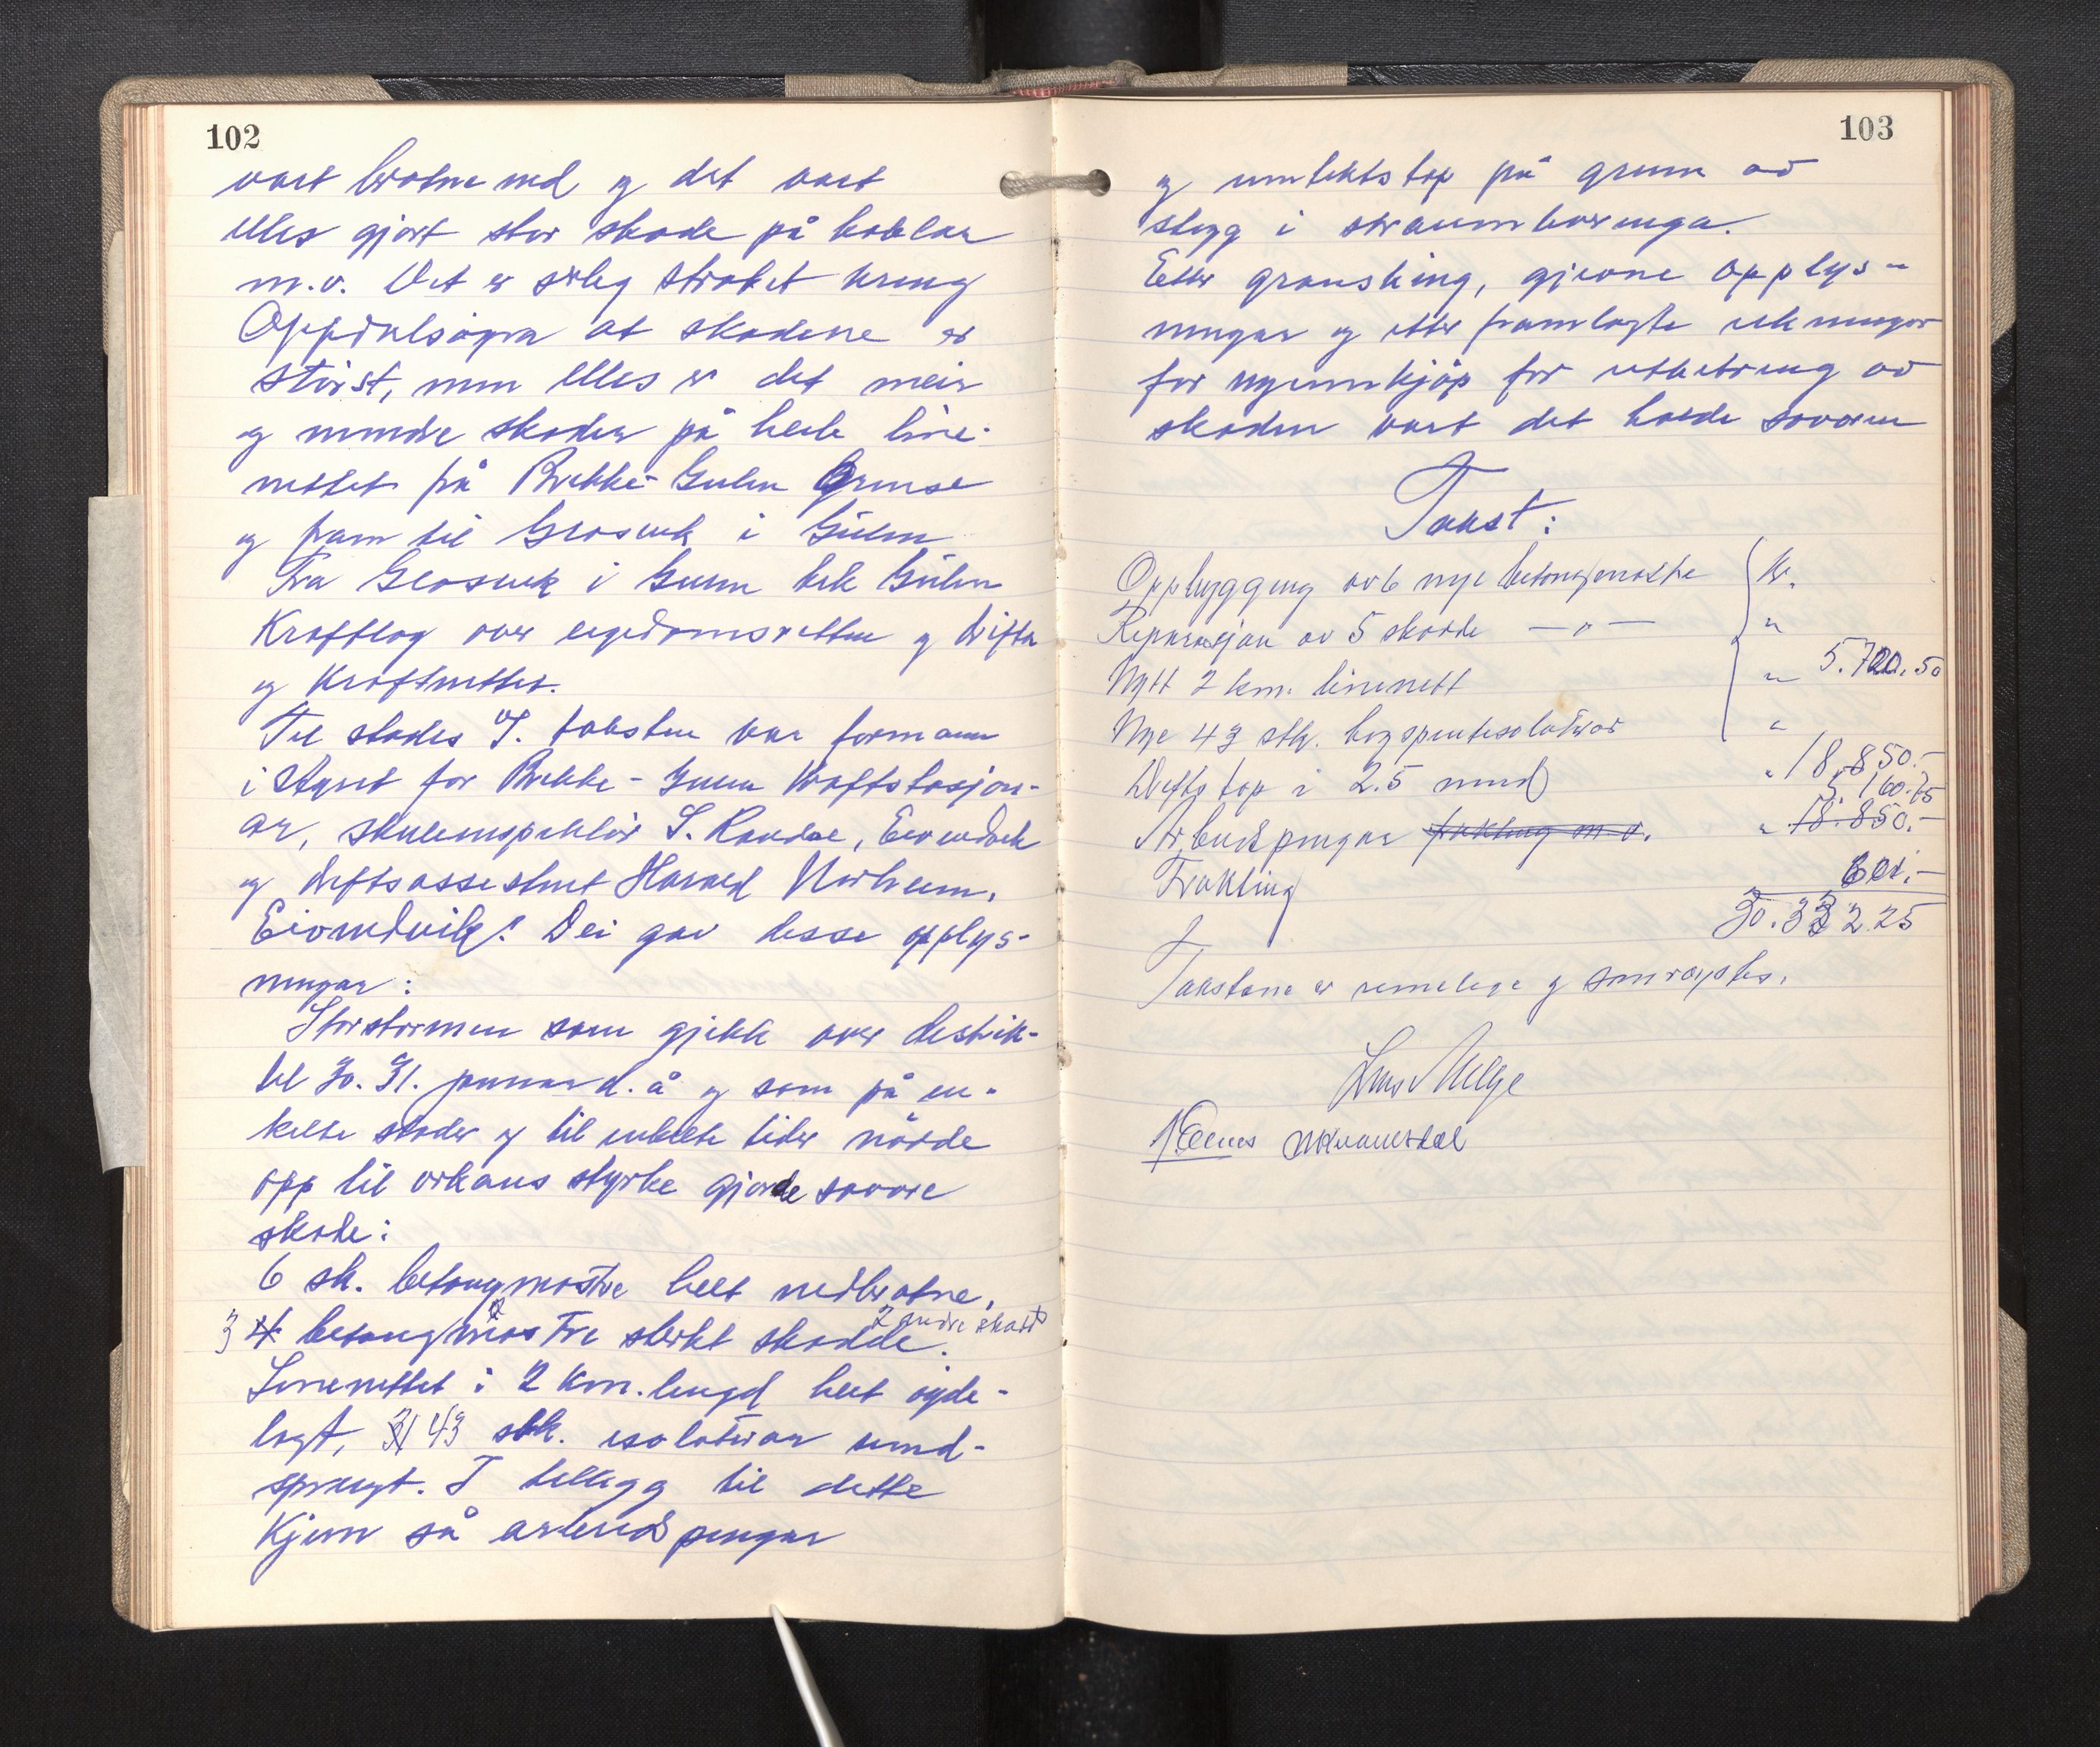 102
vart brotne ned og det vart
elles gjort stor skade på kablar
m.v. Det er serleg stroket kring
Oppdalsøyra at skadene er
störst, men elles er det meir
og mindre skader på heile line-
nettet på Brekke-Gulen Grense
og fram til Glosvik i Gulen
Fra Glosvik i Gulen tek Gulen
Kraftlag over eigedomsretten og drifta
og Kraftnettet.
Til stades v/ taksten var formann
i Styret for Brekke-Gulen Kraftstasjon-
ar, skuleinspektör S. Randal, Eivindvik
og driftsassestent Harald Norheim,
Eivindvik. Dei gav desse opplys-
ningar:
Storstormen som gjekk over distrik-
tet 30. 31. januar d. å og som på en-
kelte stader og til enkelte tider nådde
opp til orkans styrke gjorde savore
skade:
6 sk. betongmastre heilt nedbrotne,
3 4 betongmastre sterkt skadde. 2 andre skadd
Linenettet i 2 km. lengd heilt öyde-
lagt, 31 43 stk. isolatorar sund-
sprengt. I tillegg til dette
Kjem så arbeidspengar
103
og inntektstap på grunn av
stogg i straumleveringa.
Etter gransking, gjevne opplys-
ningar og etter framlagte rekningar
for nyinnkjöp for utbetring av
skaden vart det halde sovoren
Takst:
Oppbygging av 6 nye betongmastre Kr.
Reparasjon av 5 skadde —"— "
Nytt 2 km. linenett " 5.720.50
Nye 43 stk. högspentisolatorar "
Driftstap i 2.5 mnd " 18.850.-
5.160.75
Arbeidspengar frakting m.v. " 18.850.-
Frakting 601.-
30.332.25
Takstane er rimelege og samrøystes.
Lars Helge
Hans Kvamsdal